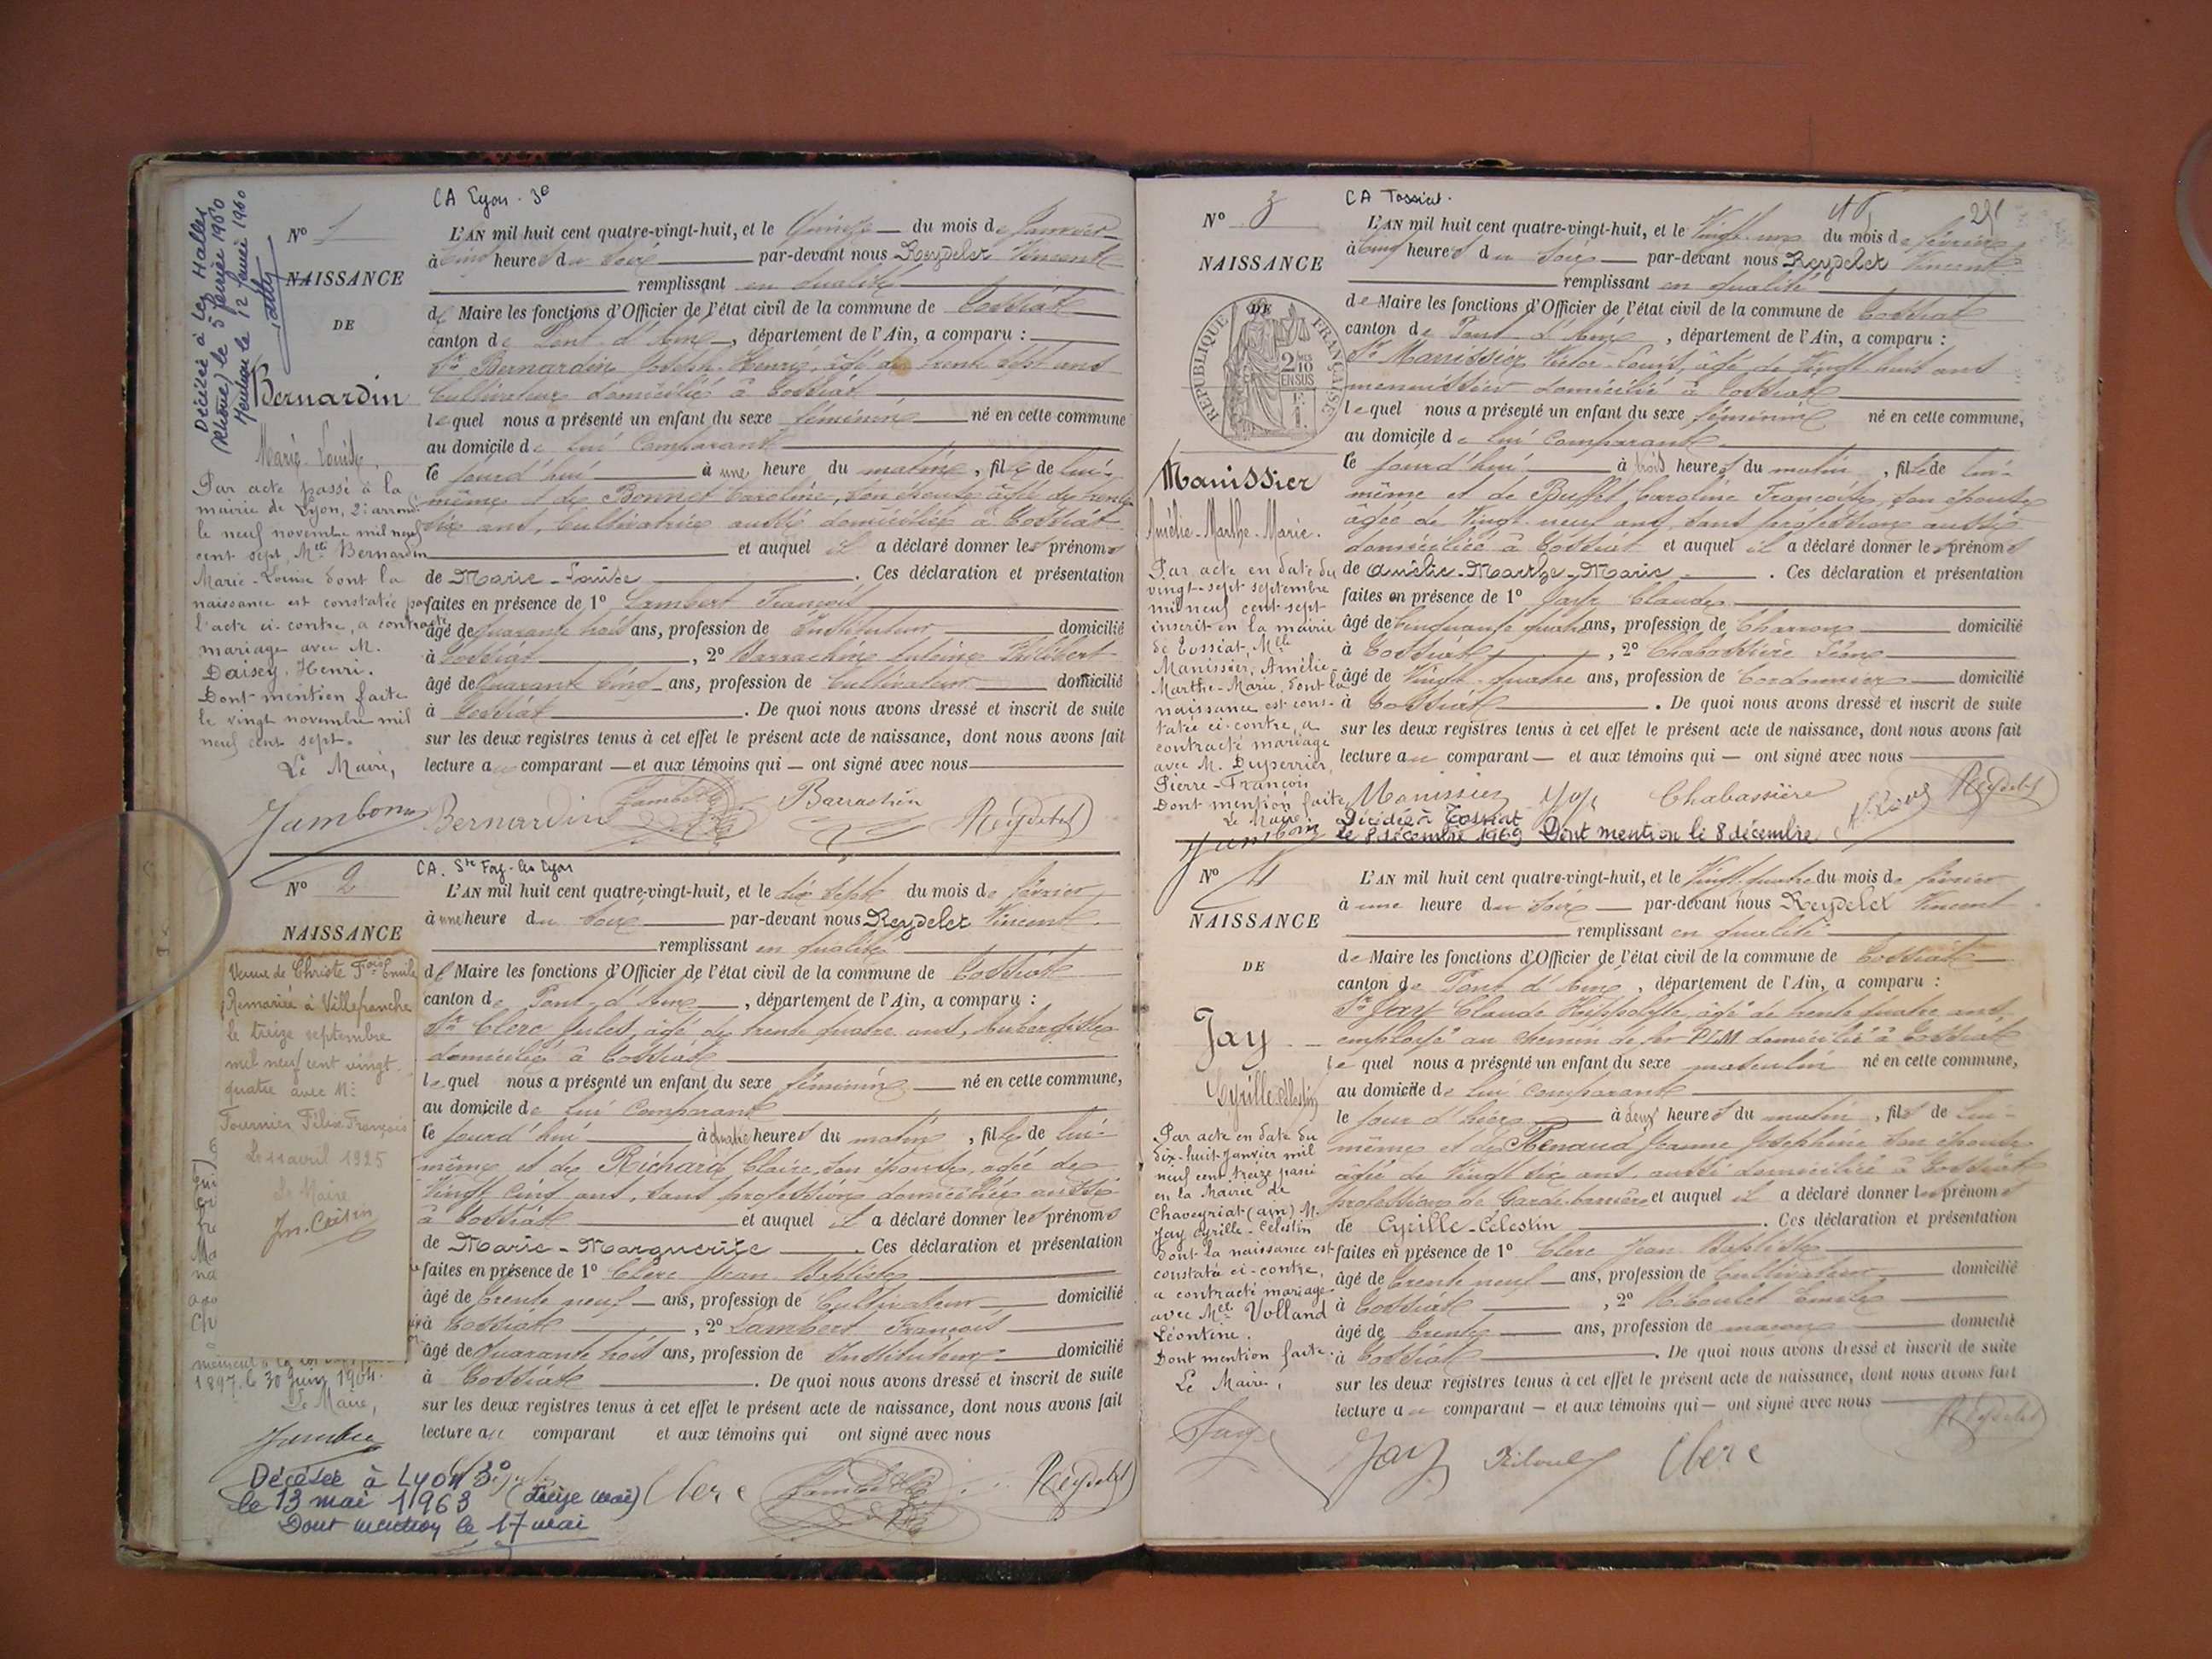 CA Lyon 3e
Décédée à Les Halles
(Rhône) le 5 février 1960
Mention le 12 février 1960
No 1
NAISSANCE
DE
Bernardin
Marie Louise
Par acte passé à la
mairie de Lyon, 2e arrondt
le neuf novembre mil neuf
cent sept, Mlle Bernardin
Marie-Louise dont la
naissance est constatée par
l'acte ci-contre, a contracté
mariage avec M.
Daisey, Henri.
Dont mention faite
le vingt novembre mil
neuf cent sept.
Le Maire,
Jambon
L'AN mil huit cent quatre-vingt-huit, et le Quinze du mois de Janvier
à Cinq heures du soir par-devant nous Reydelet Vincent
remplissant en qualité
de Maire les fonctions d'Officier de l'état civil de la commune de Tossiat
canton de Pont d'Ain, département de l'Ain, a comparu :
Sr Bernardin Joseph Henri, âgé de trente sept ans
Cultivateur domicilié à Tossiat
lequel nous a présenté un enfant du sexe féminin né en cette commune
au domicile de lui Comparant
le jourd'hui à une heure du matin, fille de lui-
même et de Bonnet Caroline, son épouse âgée de trente
six ans, Cultivatrice aussi domiciliée à Tossiat
et auquel il a déclaré donner les prénoms
de Marie-Louise. Ces déclaration et présentation
faites en présence de 1o Lambert François
âgé de Quarante trois ans, profession de Instituteur domicilié
à Tossiat, 2o Barrachin Antoine Philibert
âgé de Quarante Cinq ans, profession de Cultivateur domicilié
à Tossiat. De quoi nous avons dressé et inscrit de suite
sur les deux registres tenus à cet effet le présent acte de naissance, dont nous avons fait
lecture au comparant et aux témoins qui ont signé avec nous
Bernardin Lambert Barrachin Reydelet
CA. Ste Foy-les Lyon
No 2
NAISSANCE
Veuve de Christe Fois Emile
Remariée à Villefranche
le treize septembre
mil neuf cent vingt
quatre avec Mr
Fournier Félix François
Le 11 avril 1925
Le Maire
1897, le 30 Juin 1904.
Le Maire,
Jambon
Décédée à Lyon 3o
le 13 mai 1963 (treize mai)
Dont mention le 17 mai
L'AN mil huit cent quatre-vingt-huit, et le dix sept du mois de février
à une heure du soir par-devant nous Reydelet Vincent
remplissant en qualité
de Maire les fonctions d'Officier de l'état civil de la commune de Tossiat
canton de Pont-d'Ain, département de l'Ain, a comparu :
Sr Clerc Jules, âgé de trente quatre ans, Aubergiste
domicilié à Tossiat
lequel nous a présenté un enfant du sexe féminin né en cette commune,
au domicile de lui Comparant
le jourd'hui à quatre heures du matin, fille de lui-
même et de Richard Claire, son épouse, agée de
Vingt Cinq ans, sans profession domiciliée aussi
à Tossiat et auquel il a déclaré donner les prénoms
de Marie-Marguerite. Ces déclaration et présentation
faites en présence de 1o Clerc Jean Baptiste
âgé de trente neuf ans, profession de Cultivateur domicilié
à Tossiat, 2o Lambert François
âgé de Quarante trois ans, profession de Instituteur domicilié
à Tossiat. De quoi nous avons dressé et inscrit de suite
sur les deux registres tenus à cet effet le présent acte de naissance, dont nous avons fait
lecture au comparant et aux témoins qui ont signé avec nous
Clerc Lambert Reydelet
CA Tossiat.
No 3
NAISSANCE
DE
RÉPUBLIQUE FRANÇAISE
2/10 EN SUS
Manissier
Amélie-Marthe-Marie.
Par acte en date du
vingt-sept septembre
mil neuf cent sept
inscrit en la mairie
de Tossiat, Mlle
Manissier, Amélie
Marthe-Marie, dont la
naissance est cons-
tatée ci-contre, a
contracté mariage
avec M. Duperrier,
Pierre-François
Dont mention faite
Le Maire
Jambon
L'AN mil huit cent quatre-vingt-huit, et le Vingt un du mois de février
à Cinq heures du soir par-devant nous Reydelet Vincent
remplissant en qualité
de Maire les fonctions d'Officier de l'état civil de la commune de Tossiat
canton de Pont d'Ain, département de l'Ain, a comparu :
Sr Manissier Victor Louis, âgé de Vingt huit ans
menuisier domicilié à Tossiat
lequel nous a présenté un enfant du sexe féminin né en cette commune,
au domicile de lui Comparant
le jourd'hui à trois heures du matin, fille de lui-
même et de Buffet Caroline Françoise, son épouse
âgée de Vingt neuf ans, sans profession aussi
domiciliée à Tossiat et auquel il a déclaré donner les prénoms
de Amélie-Marthe-Marie. Ces déclaration et présentation
faites en présence de 1o Claude
âgé de Cinquante quatre ans, profession de Charron domicilié
à Tossiat, 2o Chabassière Léon
âgé de Vingt quatre ans, profession de Cordonnier domicilié
à Tossiat. De quoi nous avons dressé et inscrit de suite
sur les deux registres tenus à cet effet le présent acte de naissance, dont nous avons fait
lecture au comparant et aux témoins qui ont signé avec nous
Manissier Chabassière Reydelet
Décédée à Tossiat
le 8 décembre 1969 Dont mention le 8 décembre
No 4
NAISSANCE
DE
Jay
Cyrille Célestin
Par acte en date du
dix-huit Janvier mil
neuf cent treize passé
en la Mairie de
Chaveyriat (ain) M.
Jay Cyrille-Célestin
Dont la naissance est
constatée ci-contre,
a contracté mariage
avec Melle Volland
Léontine.
Dont mention faite.
Le Maire,
L'AN mil huit cent quatre-vingt-huit, et le Vingt quatre du mois de février
à une heure du soir par-devant nous Reydelet Vincent
remplissant en qualité
de Maire les fonctions d'Officier de l'état civil de la commune de Tossiat
canton de Pont d'Ain, département de l'Ain, a comparu :
Sr Jay Claude Hippolyte, âgé de trente quatre ans
employé au chemin de fer PLM domicilié à Tossiat
lequel nous a présenté un enfant du sexe masculin né en cette commune,
au domicile de lui comparant
le jour d'hier à deux heures du matin, fils de lui-
même et de Renaud Jeanne Joséphine son épouse
âgée de Vingt six ans, aussi domiciliée à Tossiat
profession de Garde-barrière et auquel il a déclaré donner les prénoms
de Cyrille-Célestin. Ces déclaration et présentation
faites en présence de 1o Clerc Jean Baptiste
âgé de trente neuf ans, profession de Cultivateur domicilié
à Tossiat, 2o Riboulet Emile
âgé de trente ans, profession de maçon domicilié
à Tossiat. De quoi nous avons dressé et inscrit de suite
sur les deux registres tenus à cet effet le présent acte de naissance, dont nous avons fait
lecture au comparant et aux témoins qui ont signé avec nous
Jay Clerc Reydelet